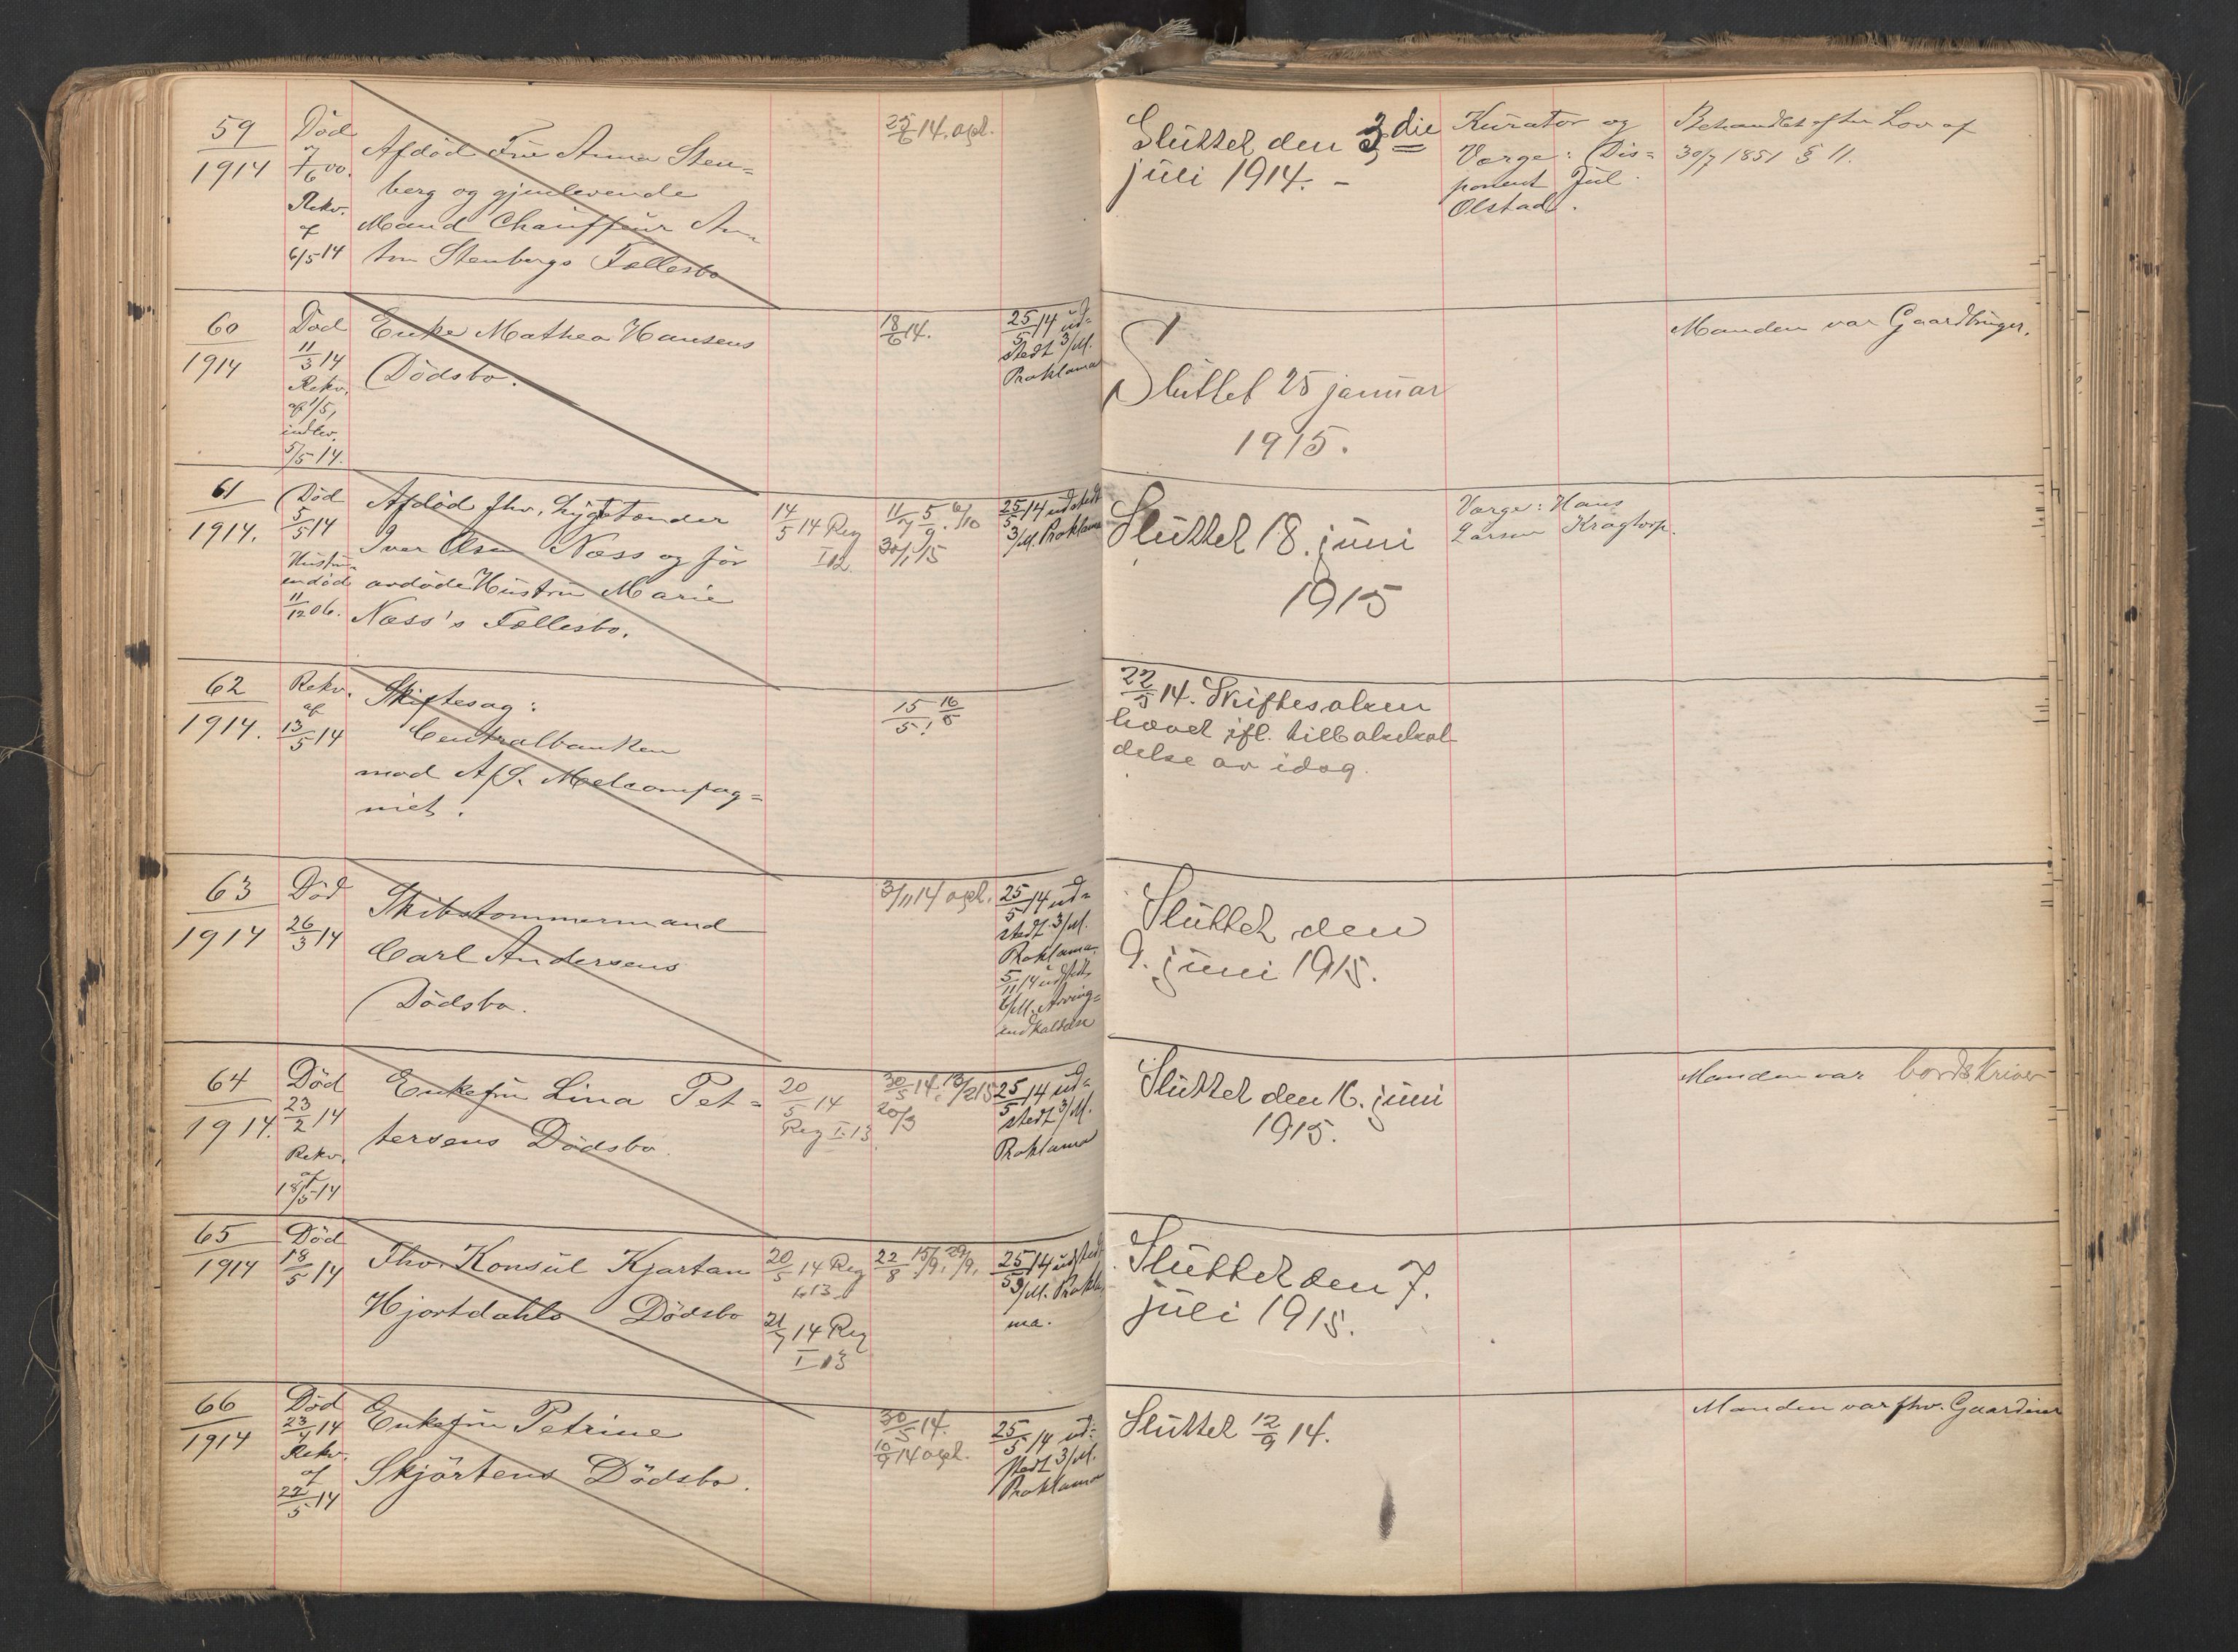 59
1914
Död
7/6 00.
Rekv.
af
6/5 14
Afdöd Frue Anna Sten=
berg og gjenlevende
Mand Chauffeur An=
ton Stenbergs Fællesbo
25/6 14. opl.
Sluttet den 3die
juli 1914. –
Kurator og
Verge: Dis=
ponent Jul.
Olstad.
Behandlet efter Lov af
30/7 1851 § 11.
60
1914
Död
11/3 14
Rekv.
af 1/5,
indlev.
5/5 14.
Enke Mathea Hansens
Dödsbo.
18/6 14.
25/5 14 ud=
stedt 3/M.
Proklama
Sluttet 25 januar
1915.
Manden var Gaardbruger.
61
1914.
Död
5/5 14
Hustru=
en död
11/12 06.
Afdöd fhv. Lygtetænder
Iver Olsen Næss og för
avdöde Hustru Marie
Næss's Fællesbo.
14/5 14 Reg
I 12.
11/7 5/9. 6/10
30/1 15
25/5 14 udstedt
3/M. Proklama
Sluttet 18. juni
1915
Verge: Hans
Larsen Kragtorp.
62
1914.
Rekv.
af
13/5 14
Skiftesag:
Centralbanken
mod A/S. Melcompag=
niet.
15/5! 16/5
22/5 14. Skiftesaken
hævet ifl. tilbakekal
delse av idag.
63
1914
Död
26/3 14
Skibstømmermand
Carl Andersens
Dödsbo.
3/11 14 opl.
25/5 14 ud=
stedt 3/M.
Proklama.
5/11 14 udstedt
6/M. Arving=
indkaldelse
Sluttet den
9. juni 1915.
64
1914.
Död
23/2 14
Rekv.
af
18/5 14
Enkefru Lina Pet=
tersens Dödsbo.
20/5 14
Reg I. 13
30/5 14. 13/2 15
20/3
25/5 14 ud=
stedt 3/M.
Proklama
Sluttet den 16. juni
1915.
Manden var bordskriver
65
1914
Död
18/5 14
Fhv. Konsul Kjartan
Hjortdahls Dödsbo
20/5 14 Reg
I 13
21/7 14 Reg
I 13
22/8 15/9. 29/9.
25/5 14 udstedt
3/M. Prokla
ma.
Sluttet den 7.
juli 1915.
66
1914
Död
23/4 14
Rekv.
af
22/5 14
Enkefru Petrine
Skjörtens Dödsbo.
30/5 14.
10/9 14 opl.
25/5 14 ud=
stedt 3/M.
Proklama
Sluttet 12/9 14.
Manden var fhv. Gaardeier